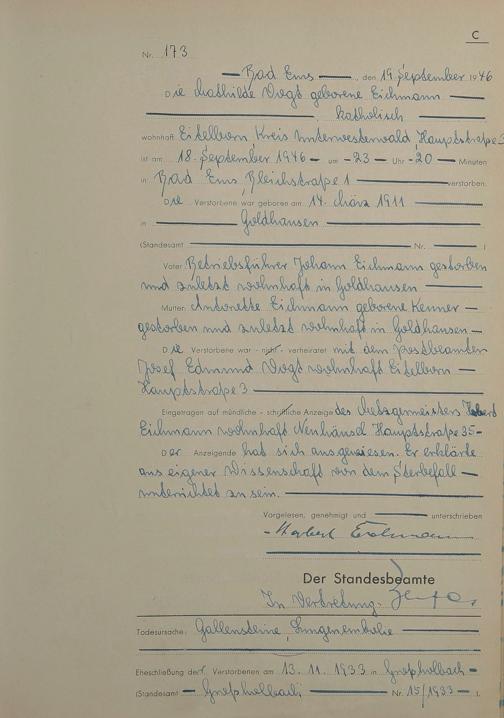 C
Nr. 173
Bad Ems, den 19. September 1946
Die Mathilde Vogt geborene Eichmann
katholisch
wohnhaft Eitelborn Kreis Unterwesterwald, Hauptstraße 3
ist am 18. September 1946 um 23 Uhr 20 Minuten
in Bad Ems, Bleichstraße 1 verstorben.
Die Verstorbene war geboren am 14. März 1911
in Goldhausen
(Standesamt Nr. )
Vater: Betriebsführer Johann Eichmann gestorben
und zuletzt wohnhaft in Goldhausen
Mutter: Antonette Eichmann geborene Kenner
gestorben und zuletzt wohnhaft in Goldhausen
Die Verstorbene war - nicht - verheiratet mit dem Postbeamten
Josef Edmund Vogt wohnhaft Eitelborn
Hauptstraße 3
Eingetragen auf mündliche - schriftliche Anzeige des Metzgermeisters
Eichmann wohnhaft Neuhäusel Hauptstraße 35
Der Anzeigende hat sich ausgewiesen. Er erklärte
aus eigener Wissenschaft von dem Sterbefall
unterrichtet zu sein.
Vorgelesen, genehmigt und unterschrieben
Der Standesbeamte
In Vertretung:
Todesursache: Gallensteine, Lungenembolie
Eheschließung der Verstorbenen am 13. 11. 1933 in Großholbach
(Standesamt Großholbach Nr. 15/1933 ).